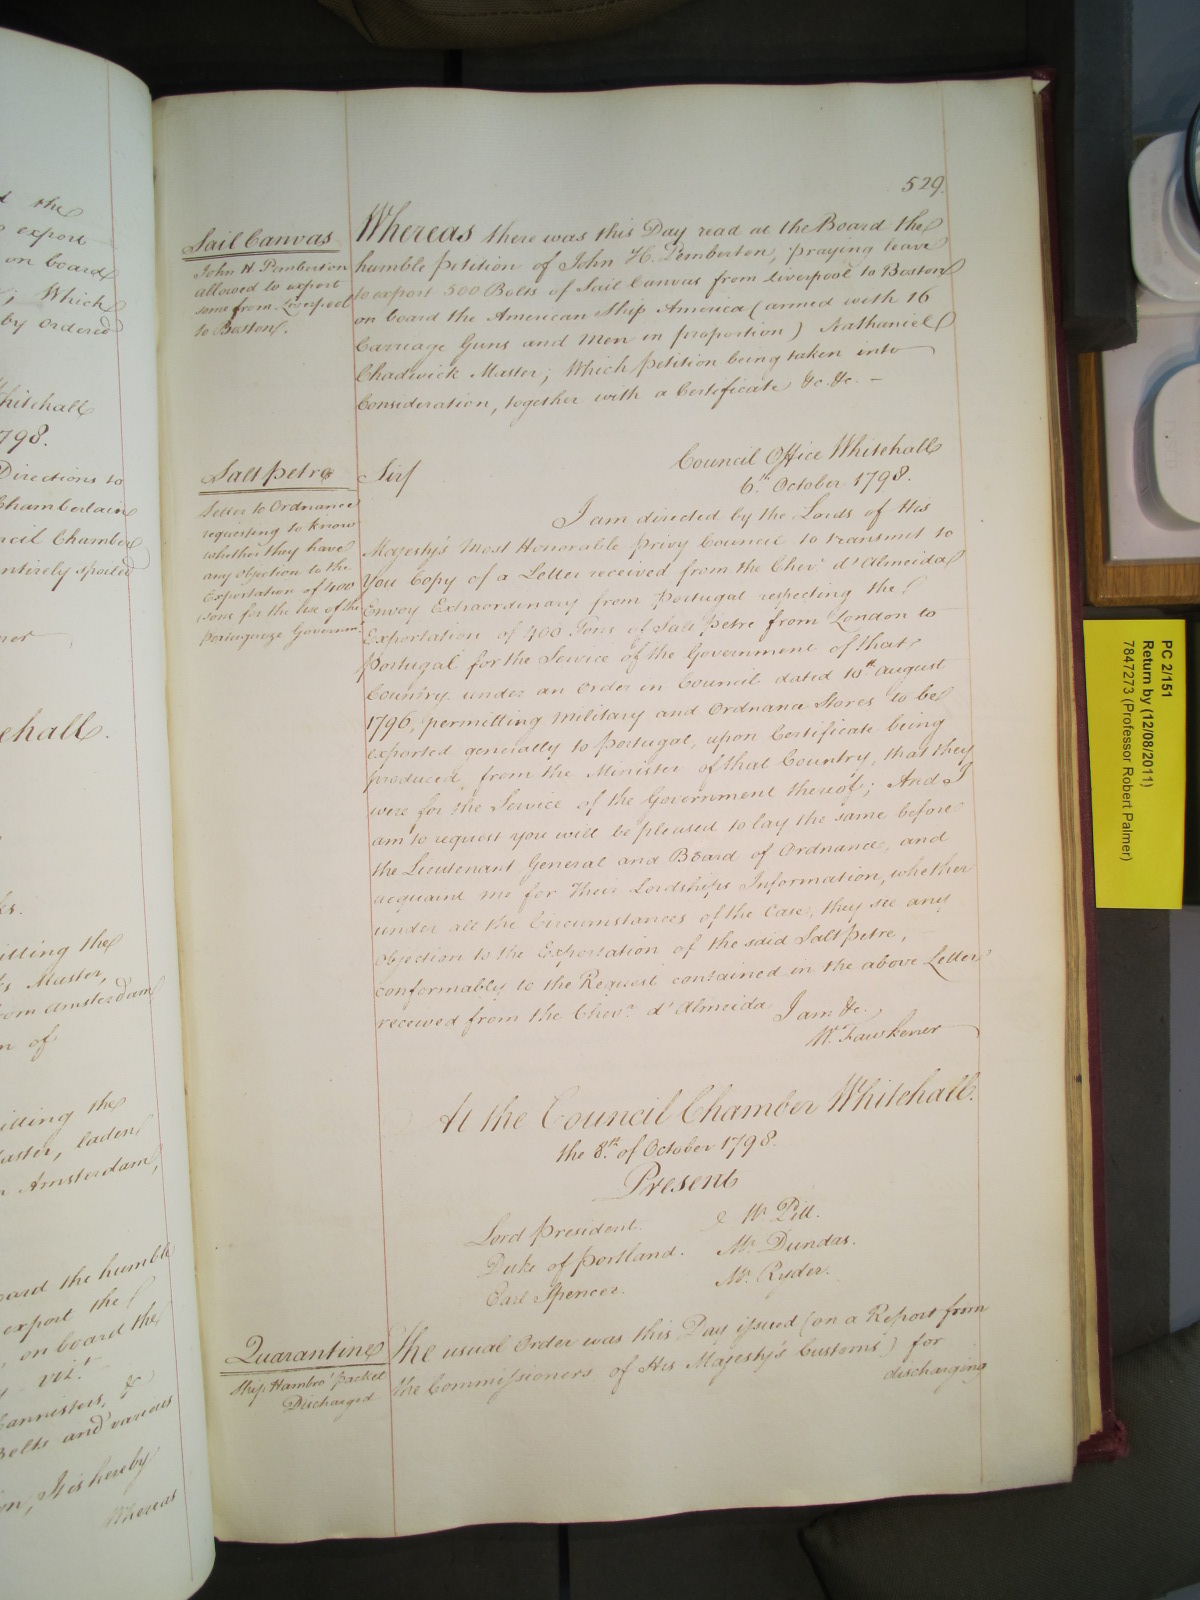 d the
export
on board
, Which
by Ordered
Whitehall
798.
Directions to
Chamberlain
ncil Chamber
entirely spoiled
ehall.
itting the
Master,
om Amsterdam
n of
itting the
aster, laden
Amsterdam,
oard the humble
export the
, on board the
vizt.
Cannisters, &
Belts and various
on, It is hereby
Whereas
529.
Sail Canvas
John H Pemberton
allowed to export
some from Liverpool
to Boston.
Whereas there was this Day read at the Board the
humble Petition of John H. Pemberton, praying leave
to export 500 Bolts of Sail Canvas from Liverpool to Boston
on board the American Ship America (armed with 16
Carriage Guns and Men in proportion) Nathaniel
Chadwick Master; Which Petition being taken into
Consideration, together with a Certificate &c. &c. –
Council Office Whitehall
6th October 1798.
Salt petre
Letter to Ordnance
requesting to know
whether they have
any objection to the
Exportation of 400
Tons for the Use of the
Portugueze Governmt
Sir,
I am directed by the Lords of His
Majesty's Most Honorable Privy Council to transmit to
You Copy of a Letter received from the Chevr d'Almeida
Envoy Extraordinary from Portugal respecting the
Exportation of 400 Tons of Salt petre from London to
Portugal for the Service of the Government of that
Country, under an Order in Council dated 10th August
1796, permitting Military and Ordnance Stores to be
exported generally to Portugal, upon Certificate being
produced, from the Minister of that Country, that they
were for the Service of the Government thereof; And I
am to request you will be pleased to lay the same before
the Lieutenant General and Board of Ordnance, and
acquaint me for Their Lordships Information, whether
under all the Circumstances of the Case, they see any
objection to the Exportation of the said Salt petre,
conformably to the Request contained in the above Letter
received from the Chevr d'Almeida
I am &c.
W. Fawkener
At the Council Chamber Whitehall.
the 8th of October 1798.
Present
Lord President.
Duke of Portland.
Earl Spencer.
Mr Pitt.
Mr Dundas.
Mr Ryder.
Quarantine
Ship Hambro' Packet
Discharged
The usual Order was this Day issued (on a Report from
the Commissioners of His Majesty's Customs) for
discharging
PC 2/151
Return by (12/08/2011)
7847273 (Professor Robert Palmer)